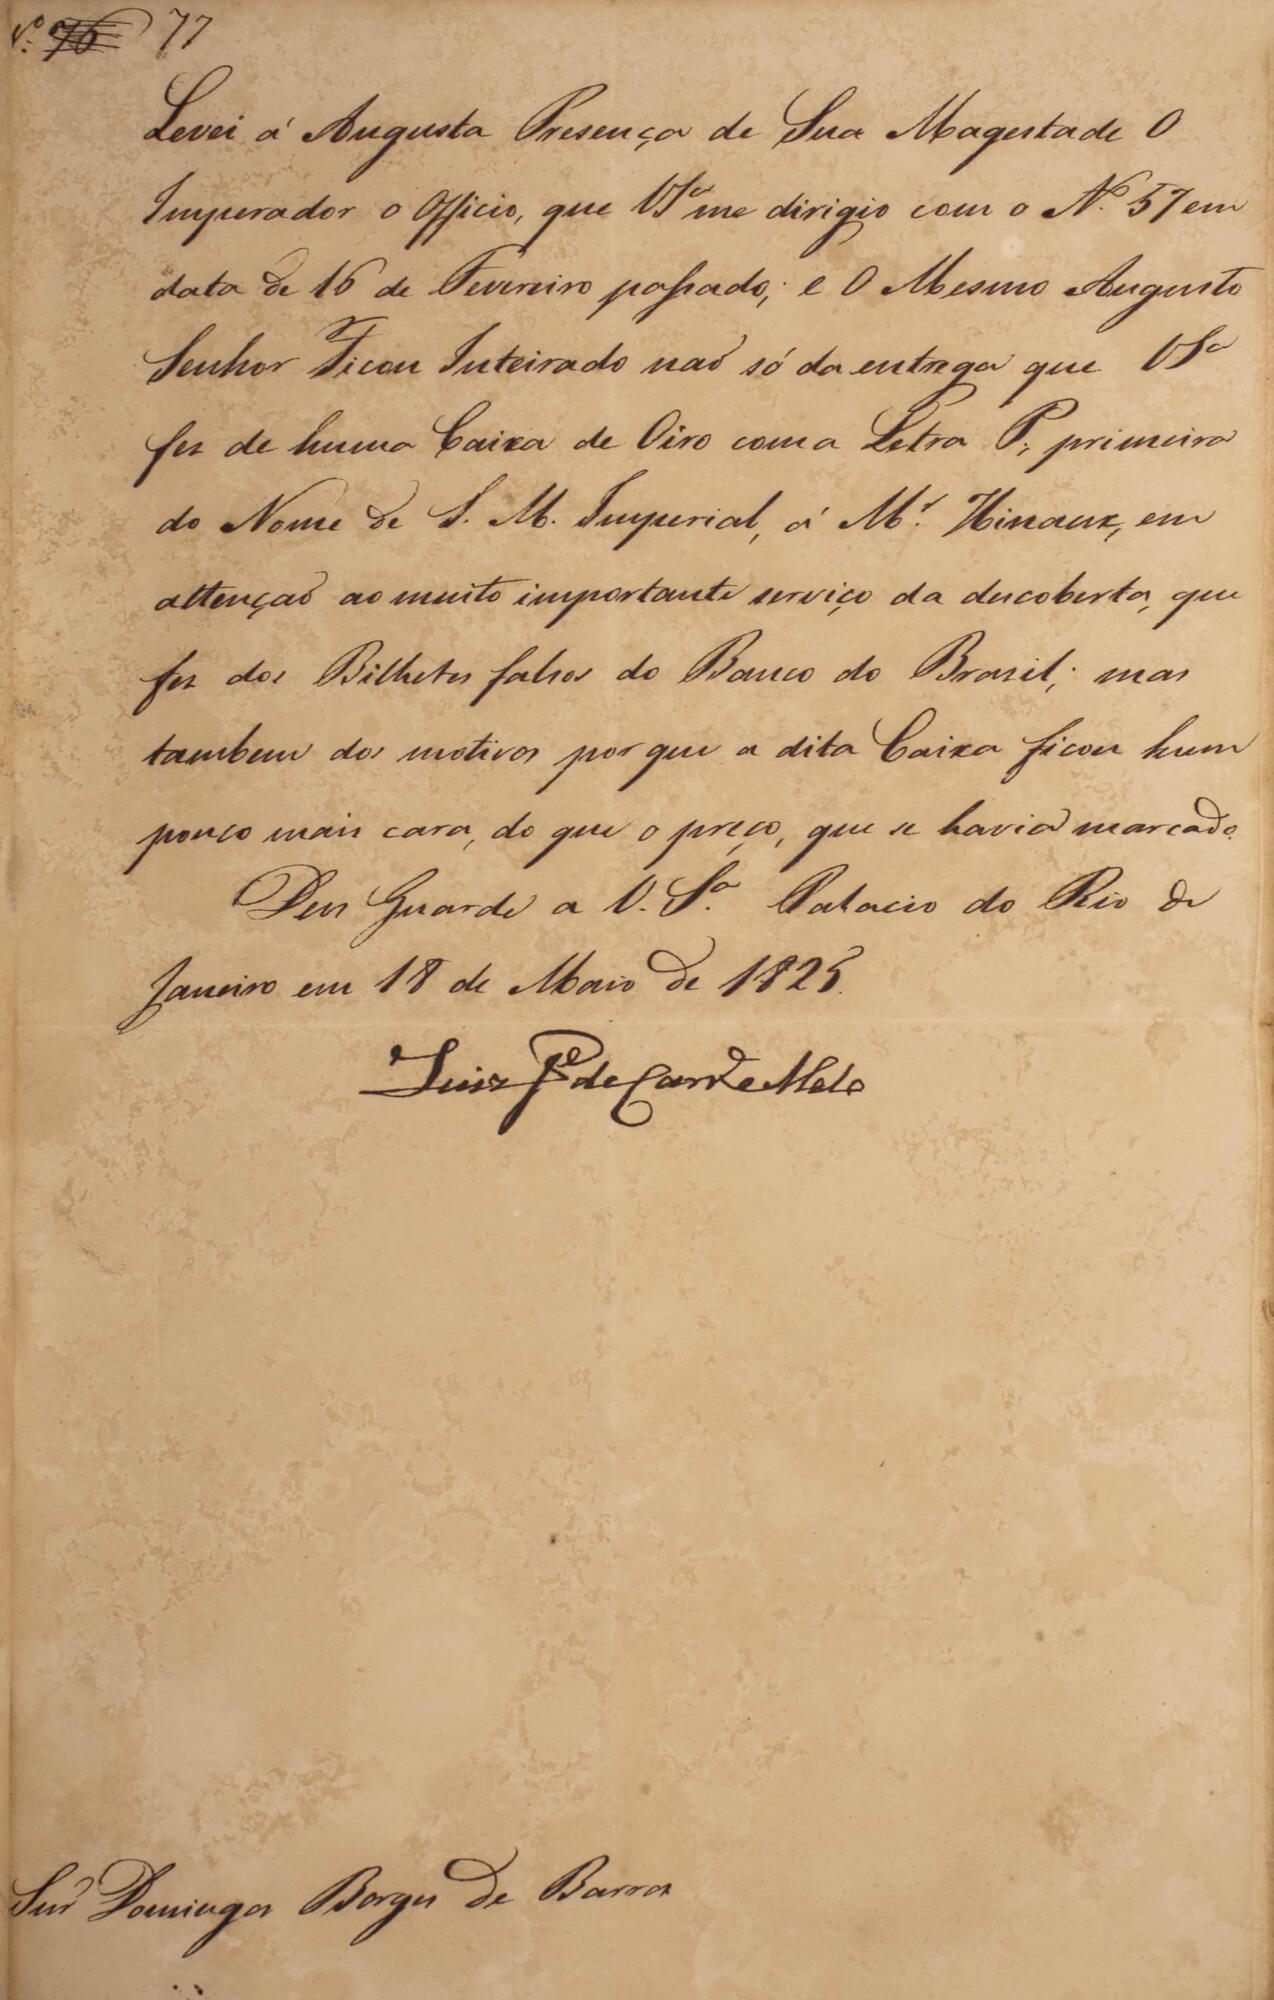 Nº 76 77
Levei á Augusta Presença de Sua Magestade O
Imperador o Officio, que VSª me dirigio com o Nº 57 em
data de 16 de Fevereiro passado; e O Mesmo Augusto
Senhor Ficou Inteirado naõ só da entrega que VSª
fes de huma Caixa de Oiro com a Letra P., primeira
do Nome de S. M. Imperial, á Mr. Hinaux, em
attençaõ ao muito importante serviço da descoberta, que
fes dos Bilhetes falsos do Banco do Brasil; mas
tambem dos motivos por que a dita Caixa ficou hum
pouco mais cara, do que o preço, que se havia marcado.
Deus Guarde a V. Sª. Palacio do Rio de
Janeiro em 18 de Maio de 1825.
Luiz Jº de Carvº e Mello
Snr Domingos Borges de Barros